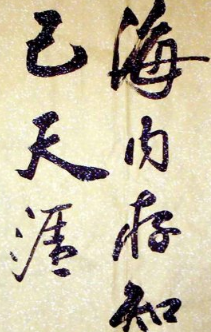 海内存知
己天涯